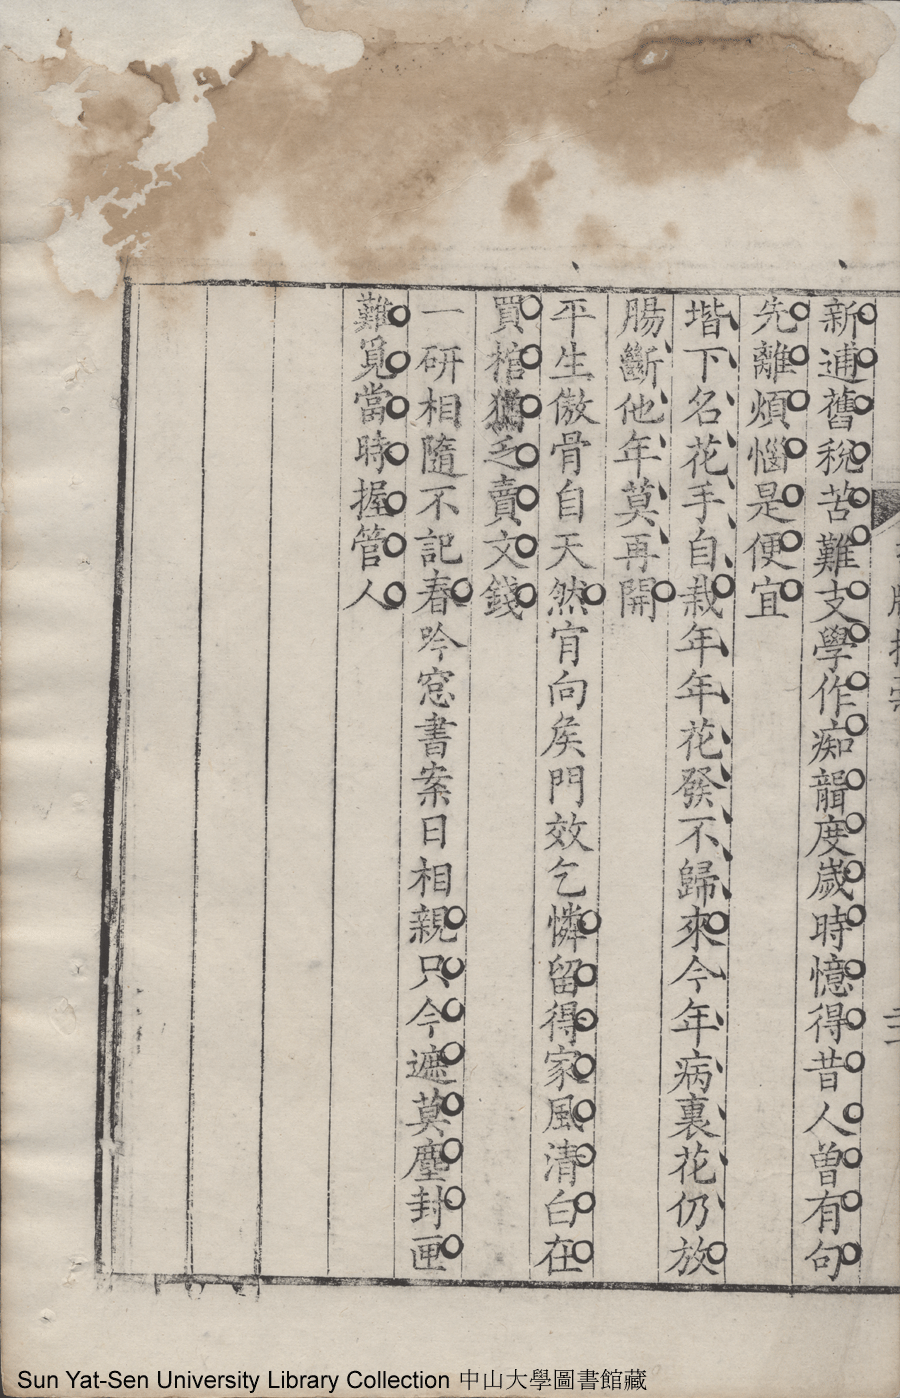 新逋舊稅苦難支學作痴韻度歲時憶得昔人曾有句
先離煩惱是便宜
堦下名花手自栽年年花發不歸來今年病裏花仍放
腸斷他年莫再開
平生傲骨自天然肯向矦門效乞憐留得家風清白在
買棺猶乏賣文錢
一研相隨不記春吟窓書案日相親只今遮莫塵封匣
難覓當時握管人
Sun Yat-Sen University Library Collection 中山大學圖書館藏